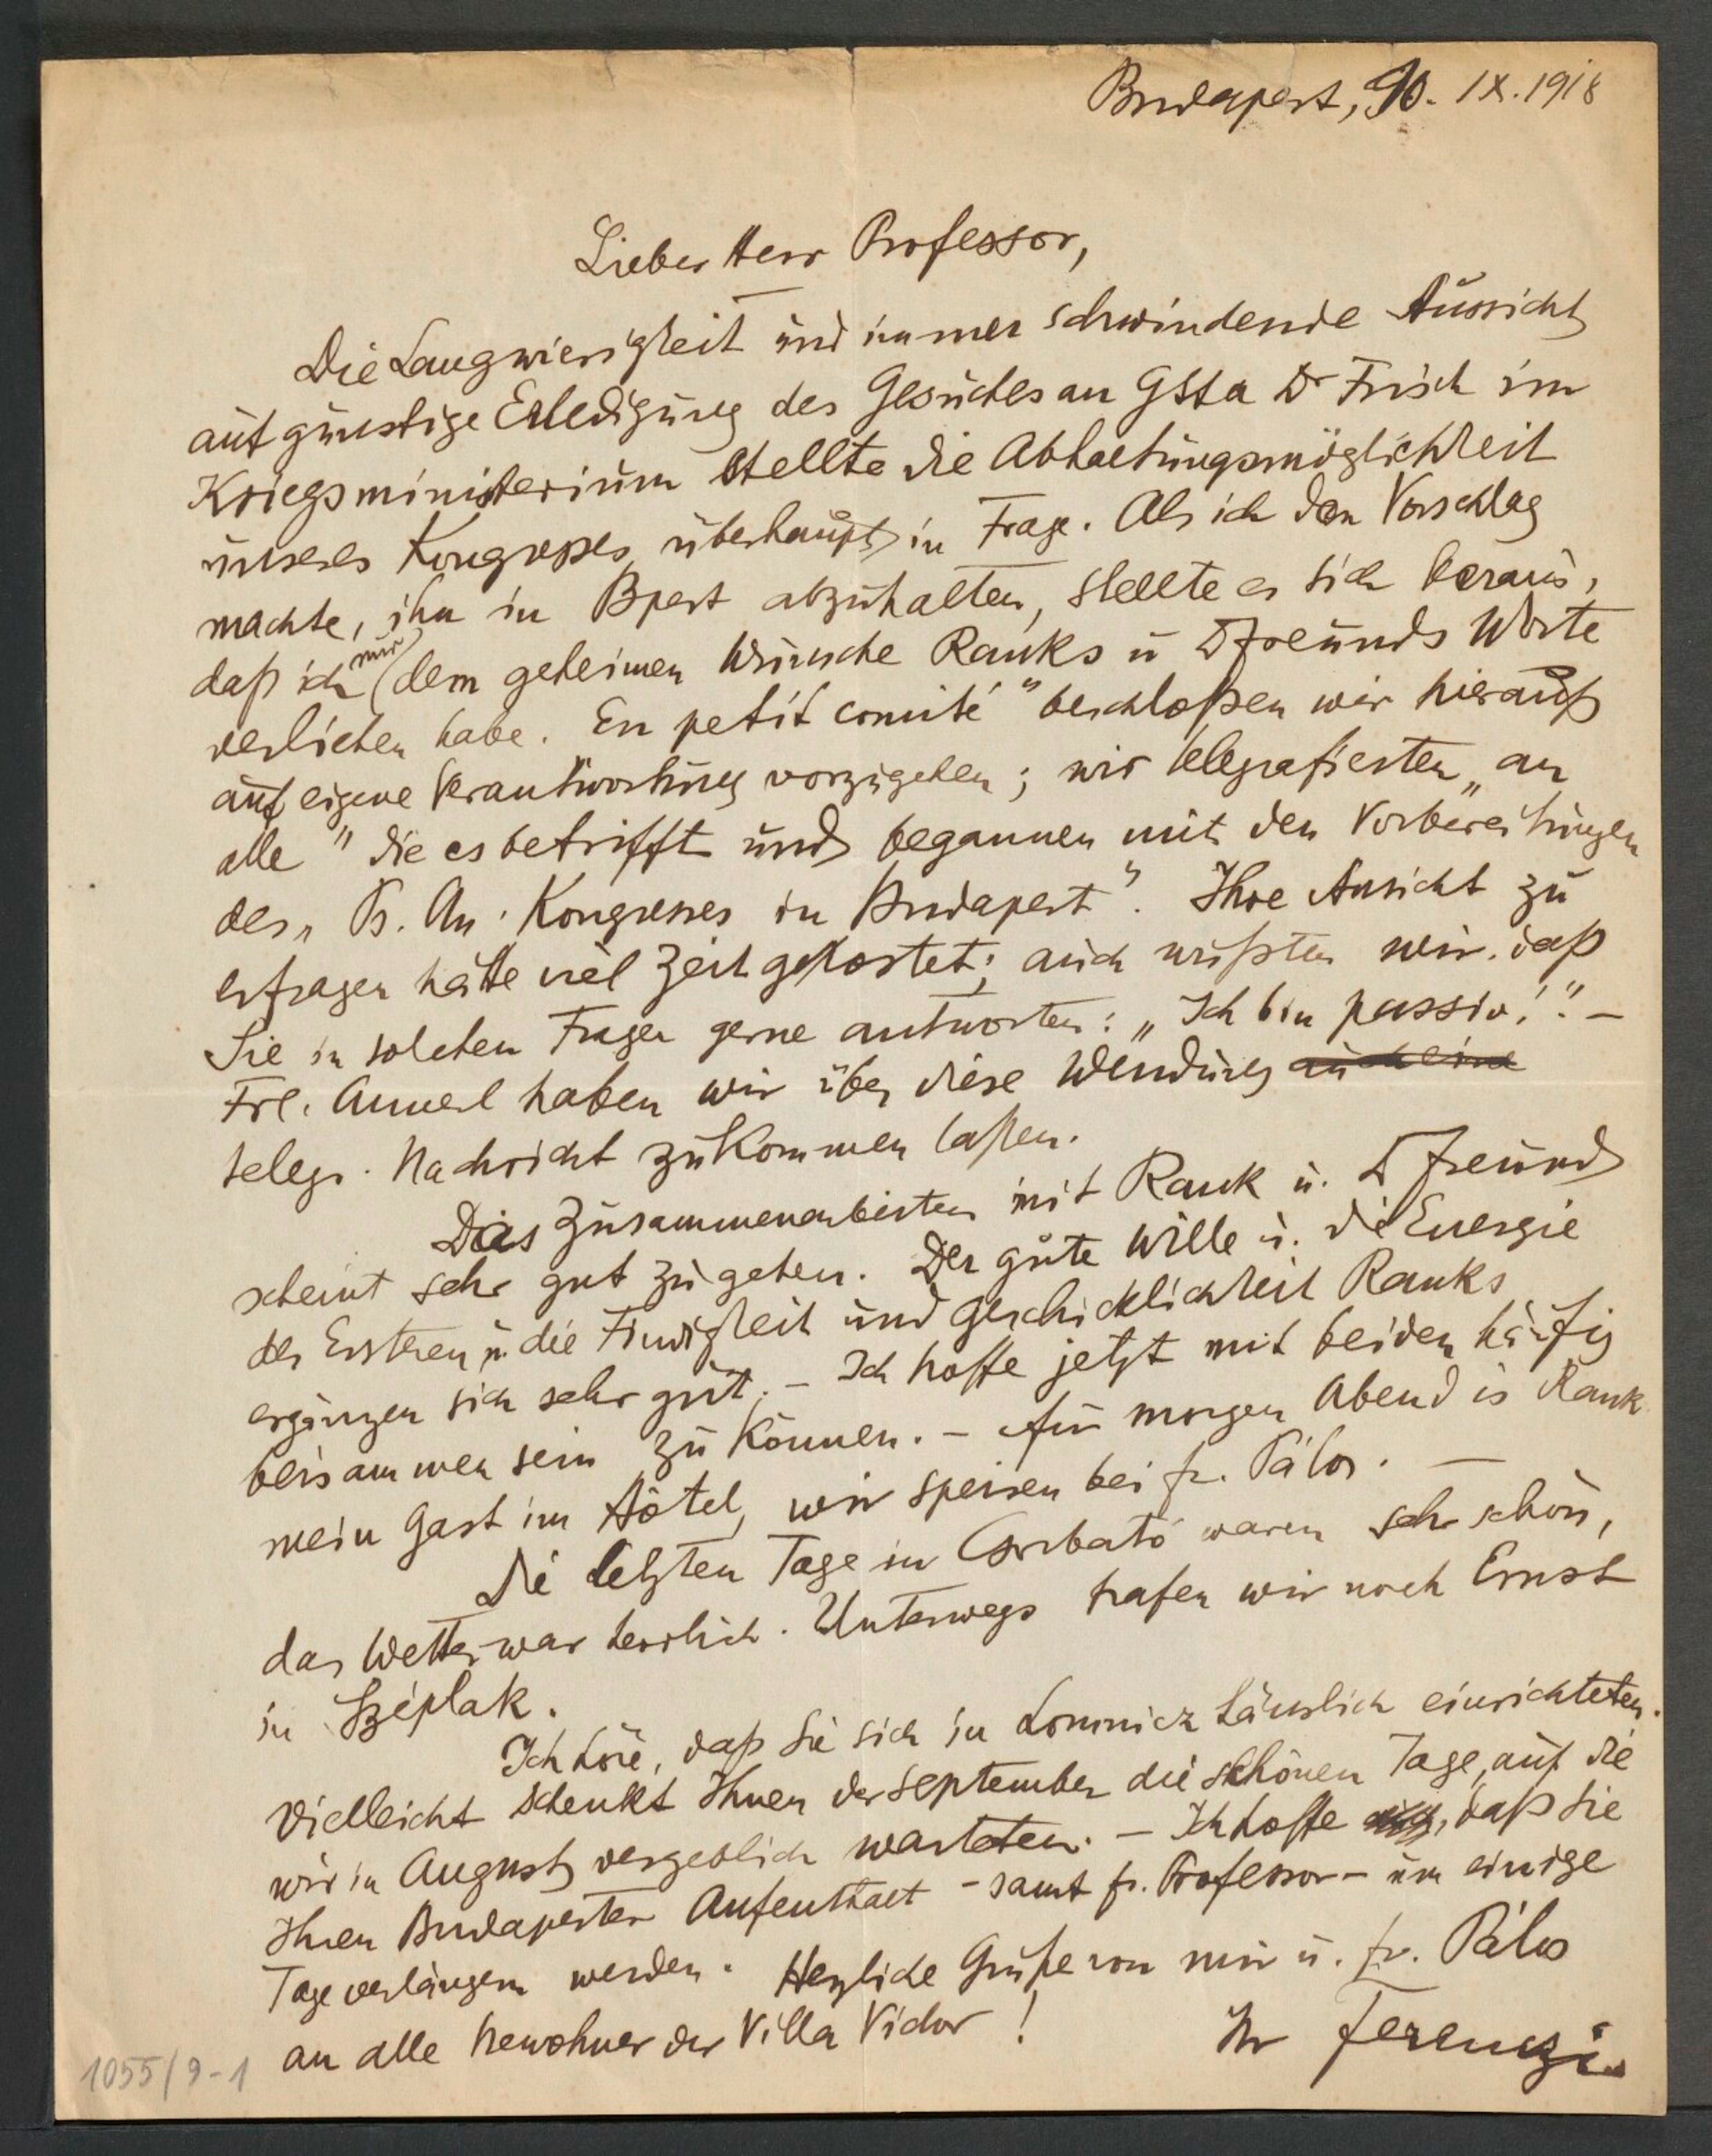 Budapest, 10. IX. 1918
Lieber Herr Professor,
Die Langwierigkeit und immer schwindende Aussicht
auf günstige Erledigung des Gesuches an GStA Dr Frisch im
Kriegsministerium stellte die Abhaltungsmöglichkeit
unseres Kongresses überhaupt in Frage. Als ich den Vorschlag
machte, ihn in Bpest abzuhalten, stellte es sich heraus,
daß ich nur dem geheimen Wunsche Ranks u Dr Freunds Worte
verliehen habe. En petit comité" beschloßen wir hierauf
auf eigene Verantwortung vorzugehen; wir telegrafierten „an
alle" die es betrifft und begannen mit den Vorbereitungen
des „Ps. An. Kongresses in Budapest". Ihre Ansicht zu
erfragen hätte viel Zeit gekostet; auch wußten wir, daß
Sie in solchen Fragen gerne antworten: „Ich bin passiv!". –
Frl. Annerl haben wir über diese Wendung auch eine
telegr. Nachricht zukommen laßen.
Das Zusammenarbeiten mit Rank u. Dr Freund
scheint sehr gut zu gehen. Der gute Wille u. die Energie
des Ersteren u. die Findigkeit und Geschicklichkeit Ranks
ergänzen sich sehr gut. – Ich hoffe jetzt mit beiden häufig
beisammen sein zu können. – Für morgen Abend is Rank
mein Gast im Hôtel, wir speisen bei fr. Pálos. –
Die letzten Tage in Csorbató waren sehr schön,
das Wetter war herrlich. Unterwegs trafen wir noch Ernst
in Széplak.
Ich höre, daß Sie sich in Lomnicz häuslich einrichteten.
Vielleicht schenkt Ihnen der September die schönen Tage, auf die
wir in August vergeblich warteten. – Ich hoffe, daß Sie
Ihren Budapester Aufenthalt – samt fr. Professor – um einige
Tage verlängern werden. Herzliche Grüße von mir u. fr. Pálos
an alle Bewohner der Villa Vidor!
Ihr Ferenczi
1055/9-1